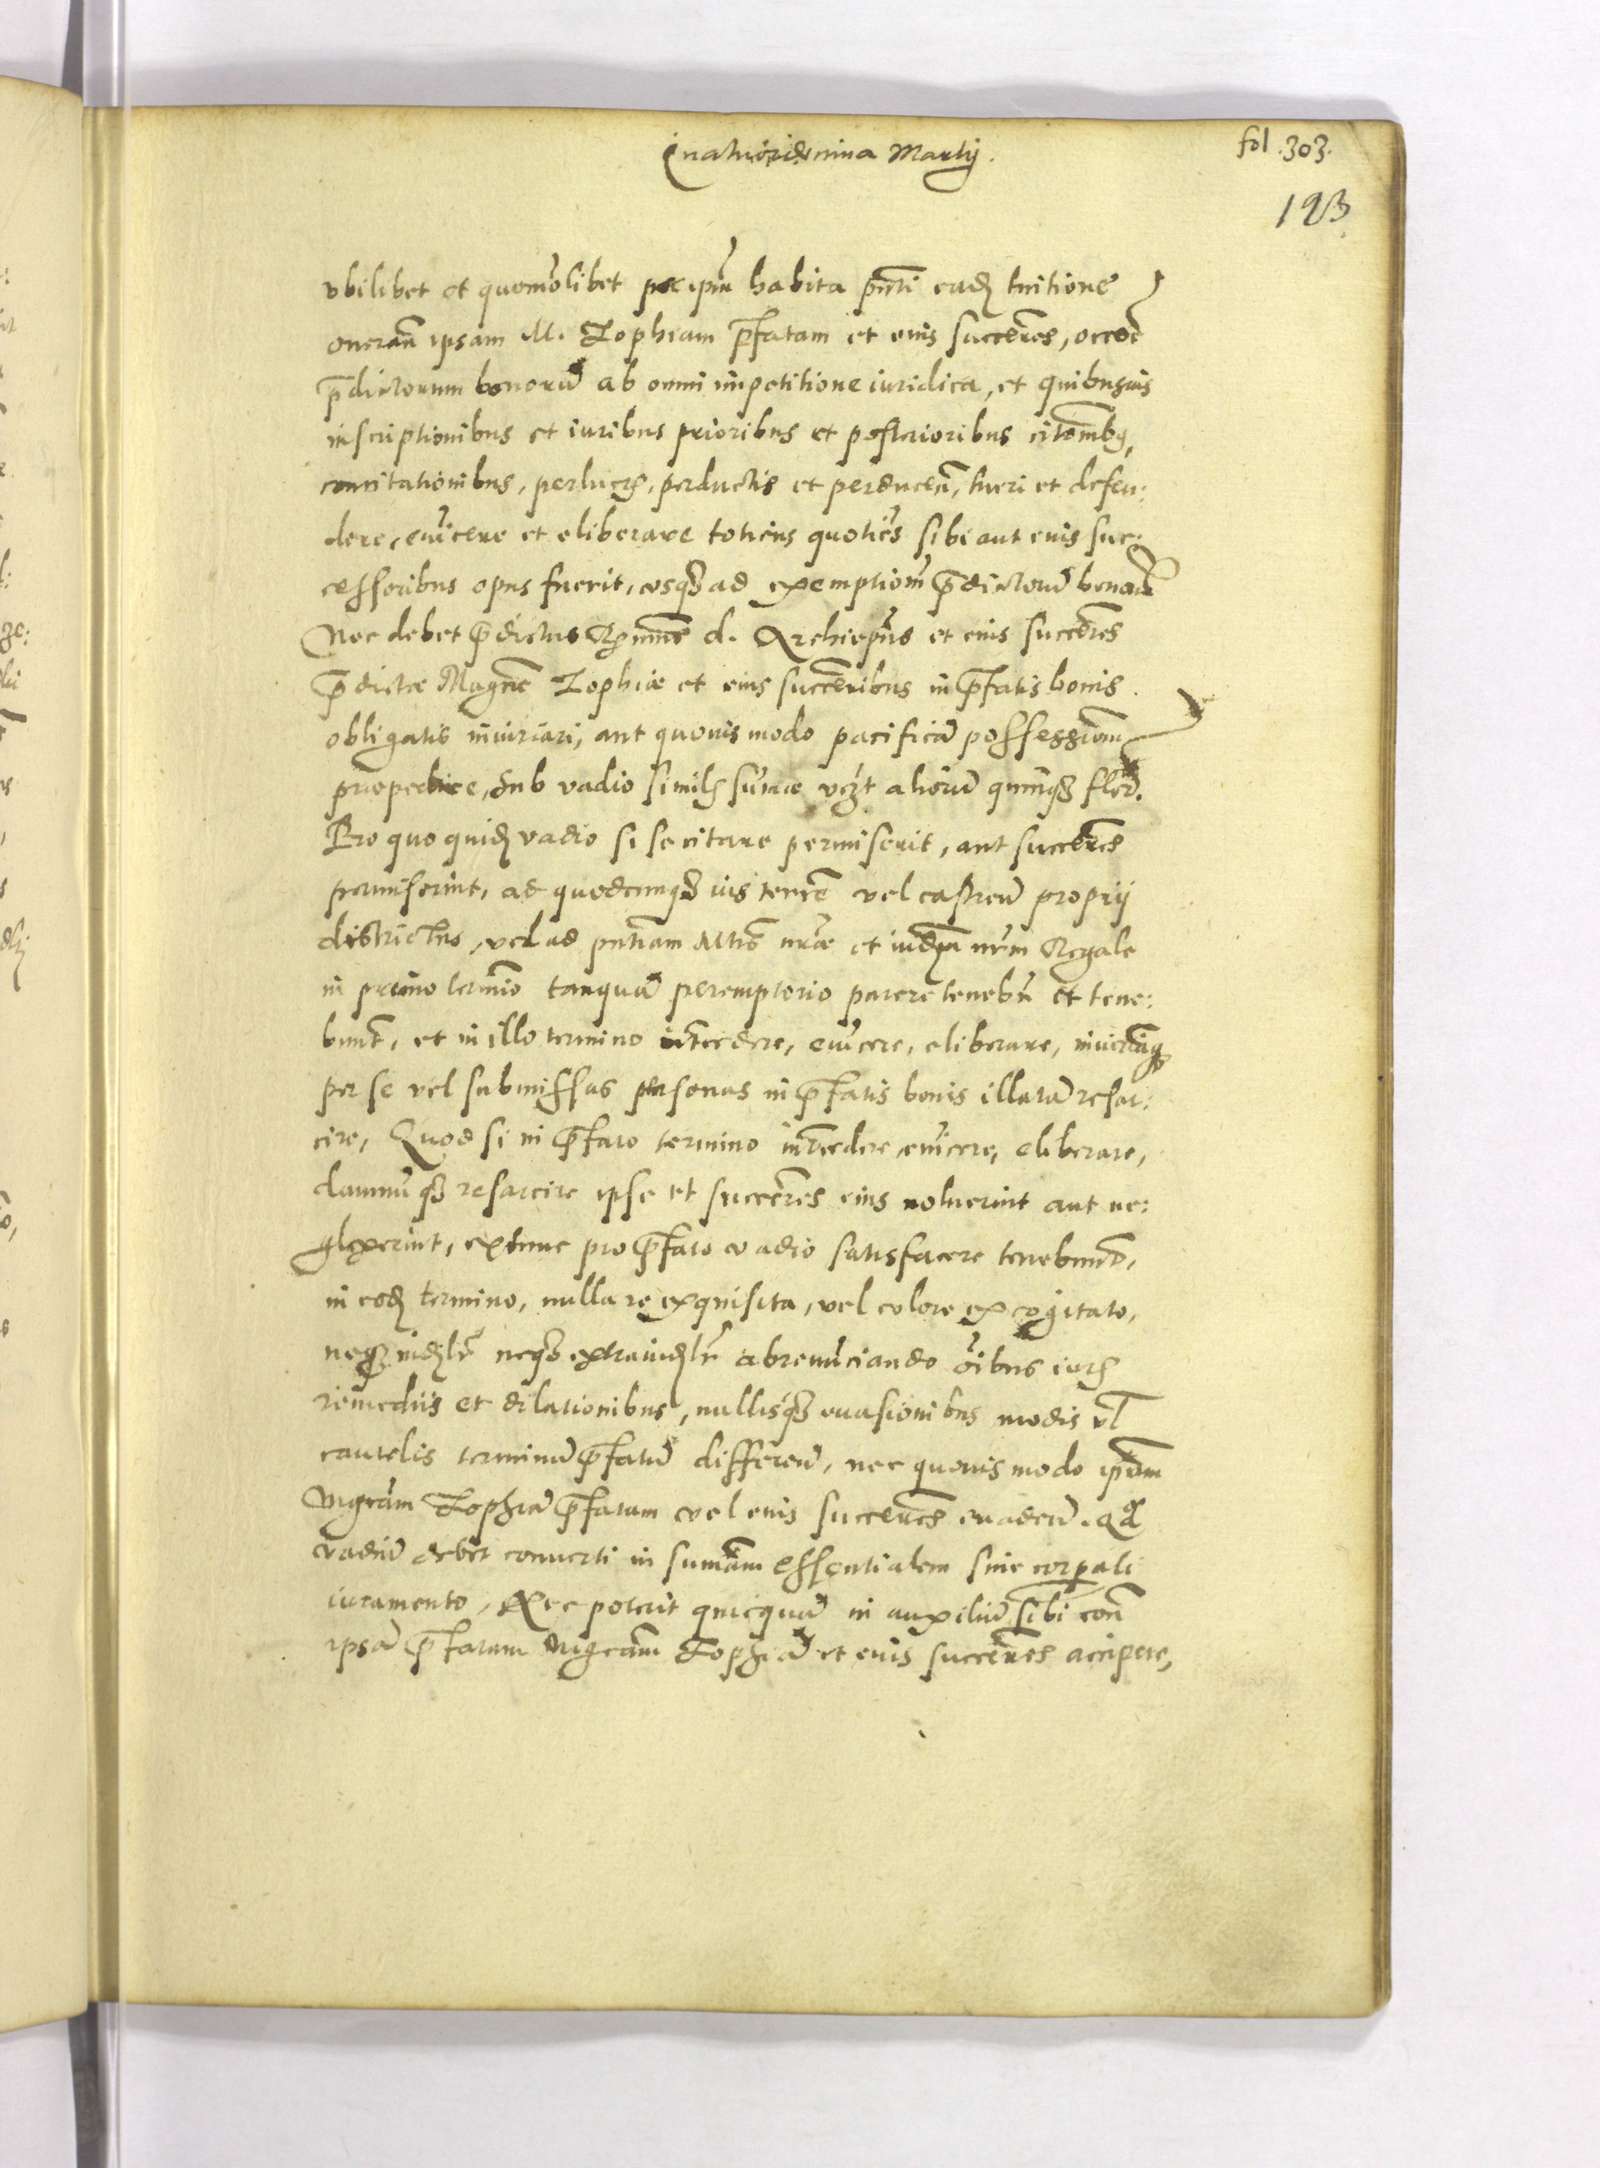 Quatuordenina Martij.
fol .303.
193.
vbilibet et quomolibet per ipm habita pnti eadem tuitione
oneran ipsam M. Zophiam pfatam et eius succeres, occoe
pdictorum bonorū ab omni impetitione iuridica, et quibusuis
inscriptionibus et iuribus prioribus et posterioribus citombq,
concitationibus, perlucris, perductis et perducen, tueri et defen:
dere, euicere et eliberare totiens quoties sibi aut eius suc:
cessoribus opus fuerit, vsq ad exemptionē pdictorū bonorū
Nec debet pdictus Rmus d. Archiepus et eius succeres
pdictæ Magcæ Zophiæ et eius succeribus in pfatis bonis
obligatis iniuriari, aut quouis modo pacificā possessionem
propedire, sub vadio similis sumæ vzt aliorū quingq flor.
Pro quo quidem vadio si se citare permiserit, aut succeres
permiserint, ad quodcunq ius terrē vel castren proprij
districtus, vel ad pntiam Mtis nræ et iudm nrm Regale
in primo termio tanquā peremptorio parere tenebr et tene:
bunt, et in illo termino intcedere, euicere, eliberare, iniuriāq
per se vel submissas personas in pfatis bonis illatā resar:
cire, Quod si in pfato termino intcedere, euicere, eliberare,
damnūq resarcire ipse et succeres eius noluerint aut ne:
glexerint, extunc pro pfato vadio satisfacere tenebunt,
in eodem termino, nulla re exquisita, vel colore excogitato,
neq iudlr neq extraiudlr abrenūciando oibus iuris
remediis et dilationibus, nullisq euasionibus modis vl
cautelis terminū pfatū differen, nec quouis modo ipam
Mgcam Zophiā pfatam vel eius succeres euaden. Qd
vadiū debet conuerti in sumam essentialem sine corpali
iuramento, Nec poterit quicquā in auxiliū sibi con
ipsā pfatam Mgcam Zophiā et eius succeres accipere,